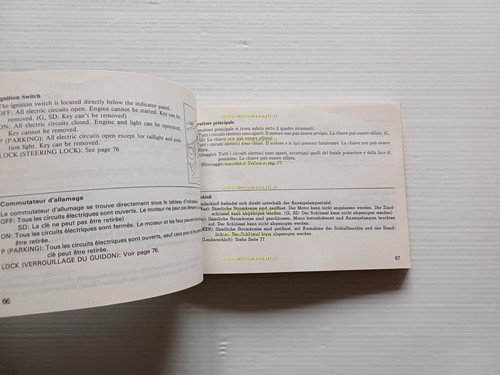 Ignition Switch
The ignition switch is located directly below the indicator panel.
OFF: All electric circuits open. Engine cannot be started. Key can be
removed. (G, SD: Key can't be removed)
ON: All electric circuits closed. Engine and light can be operated.
Key cannot be removed.
P (PARKING): All electric circuits open except for taillight and
tion light. Key can be removed.
LOCK (STEERING LOCK): See page 76
Commutateur d'allamage
Le commutateur d'allumage se trouve directement sous le tableau
OFF: Tous les circuits électriques sont ouverts. Le moteur ne peut pas
SD: La clé ne peut pas être retirée)
ON: Tous les circuits électriques sont fermés. Le moteur et les feux peuvent
être retirée.
P (PARKING): Tous les circuits électriques sont ouverts, sauf ceux pour
clé peut être retirée.
LOCK (VERROUILLAGE DU GUIDON): Voir page 76.
66
www.motomanuali.it
principale
si trova subito sotto il quadro strumenti.
Tutti i circuiti elettrici sono aperti. Il motore non può essere avviato. La chiave può essere sfilata.
SD: La chiave non può essere sfilata)
Tutti i circuiti elettrici sono chiusi. Il motore e le luci possono funzionare. La chiave non può essere sfilata.
Tutti i circuiti elettrici sono aperti, eccettuati quelli del fanale posteriore e della luce di
posizione. La chiave può essere sfilata.
pag. 77.
www.motomanuali.it
befindet sich direkt unterhalb der Anzeigelampentafel.
Sämtliche Stromkreise sind geöffnet. Der Motor kann nicht angelassen werden. Der Zünd-
schlüssel kann abgezogen werden. (G, SD: Der Schlüssel kann nicht abgezogen werden)
Sämtliche Stromkreise sind geschlossen. Motor betriebsbereit und Anzeigelampen leuchten
Der Schlüssel kann nicht abgezogen werden.
Sämtliche Stromkreise sind geöffnet, mit Ausnahme der Schlußleuchte und des Stand-
Der Schlüssel kann abgezogen werden.
Siehe Seite 77.
www.motomanuali.it
67